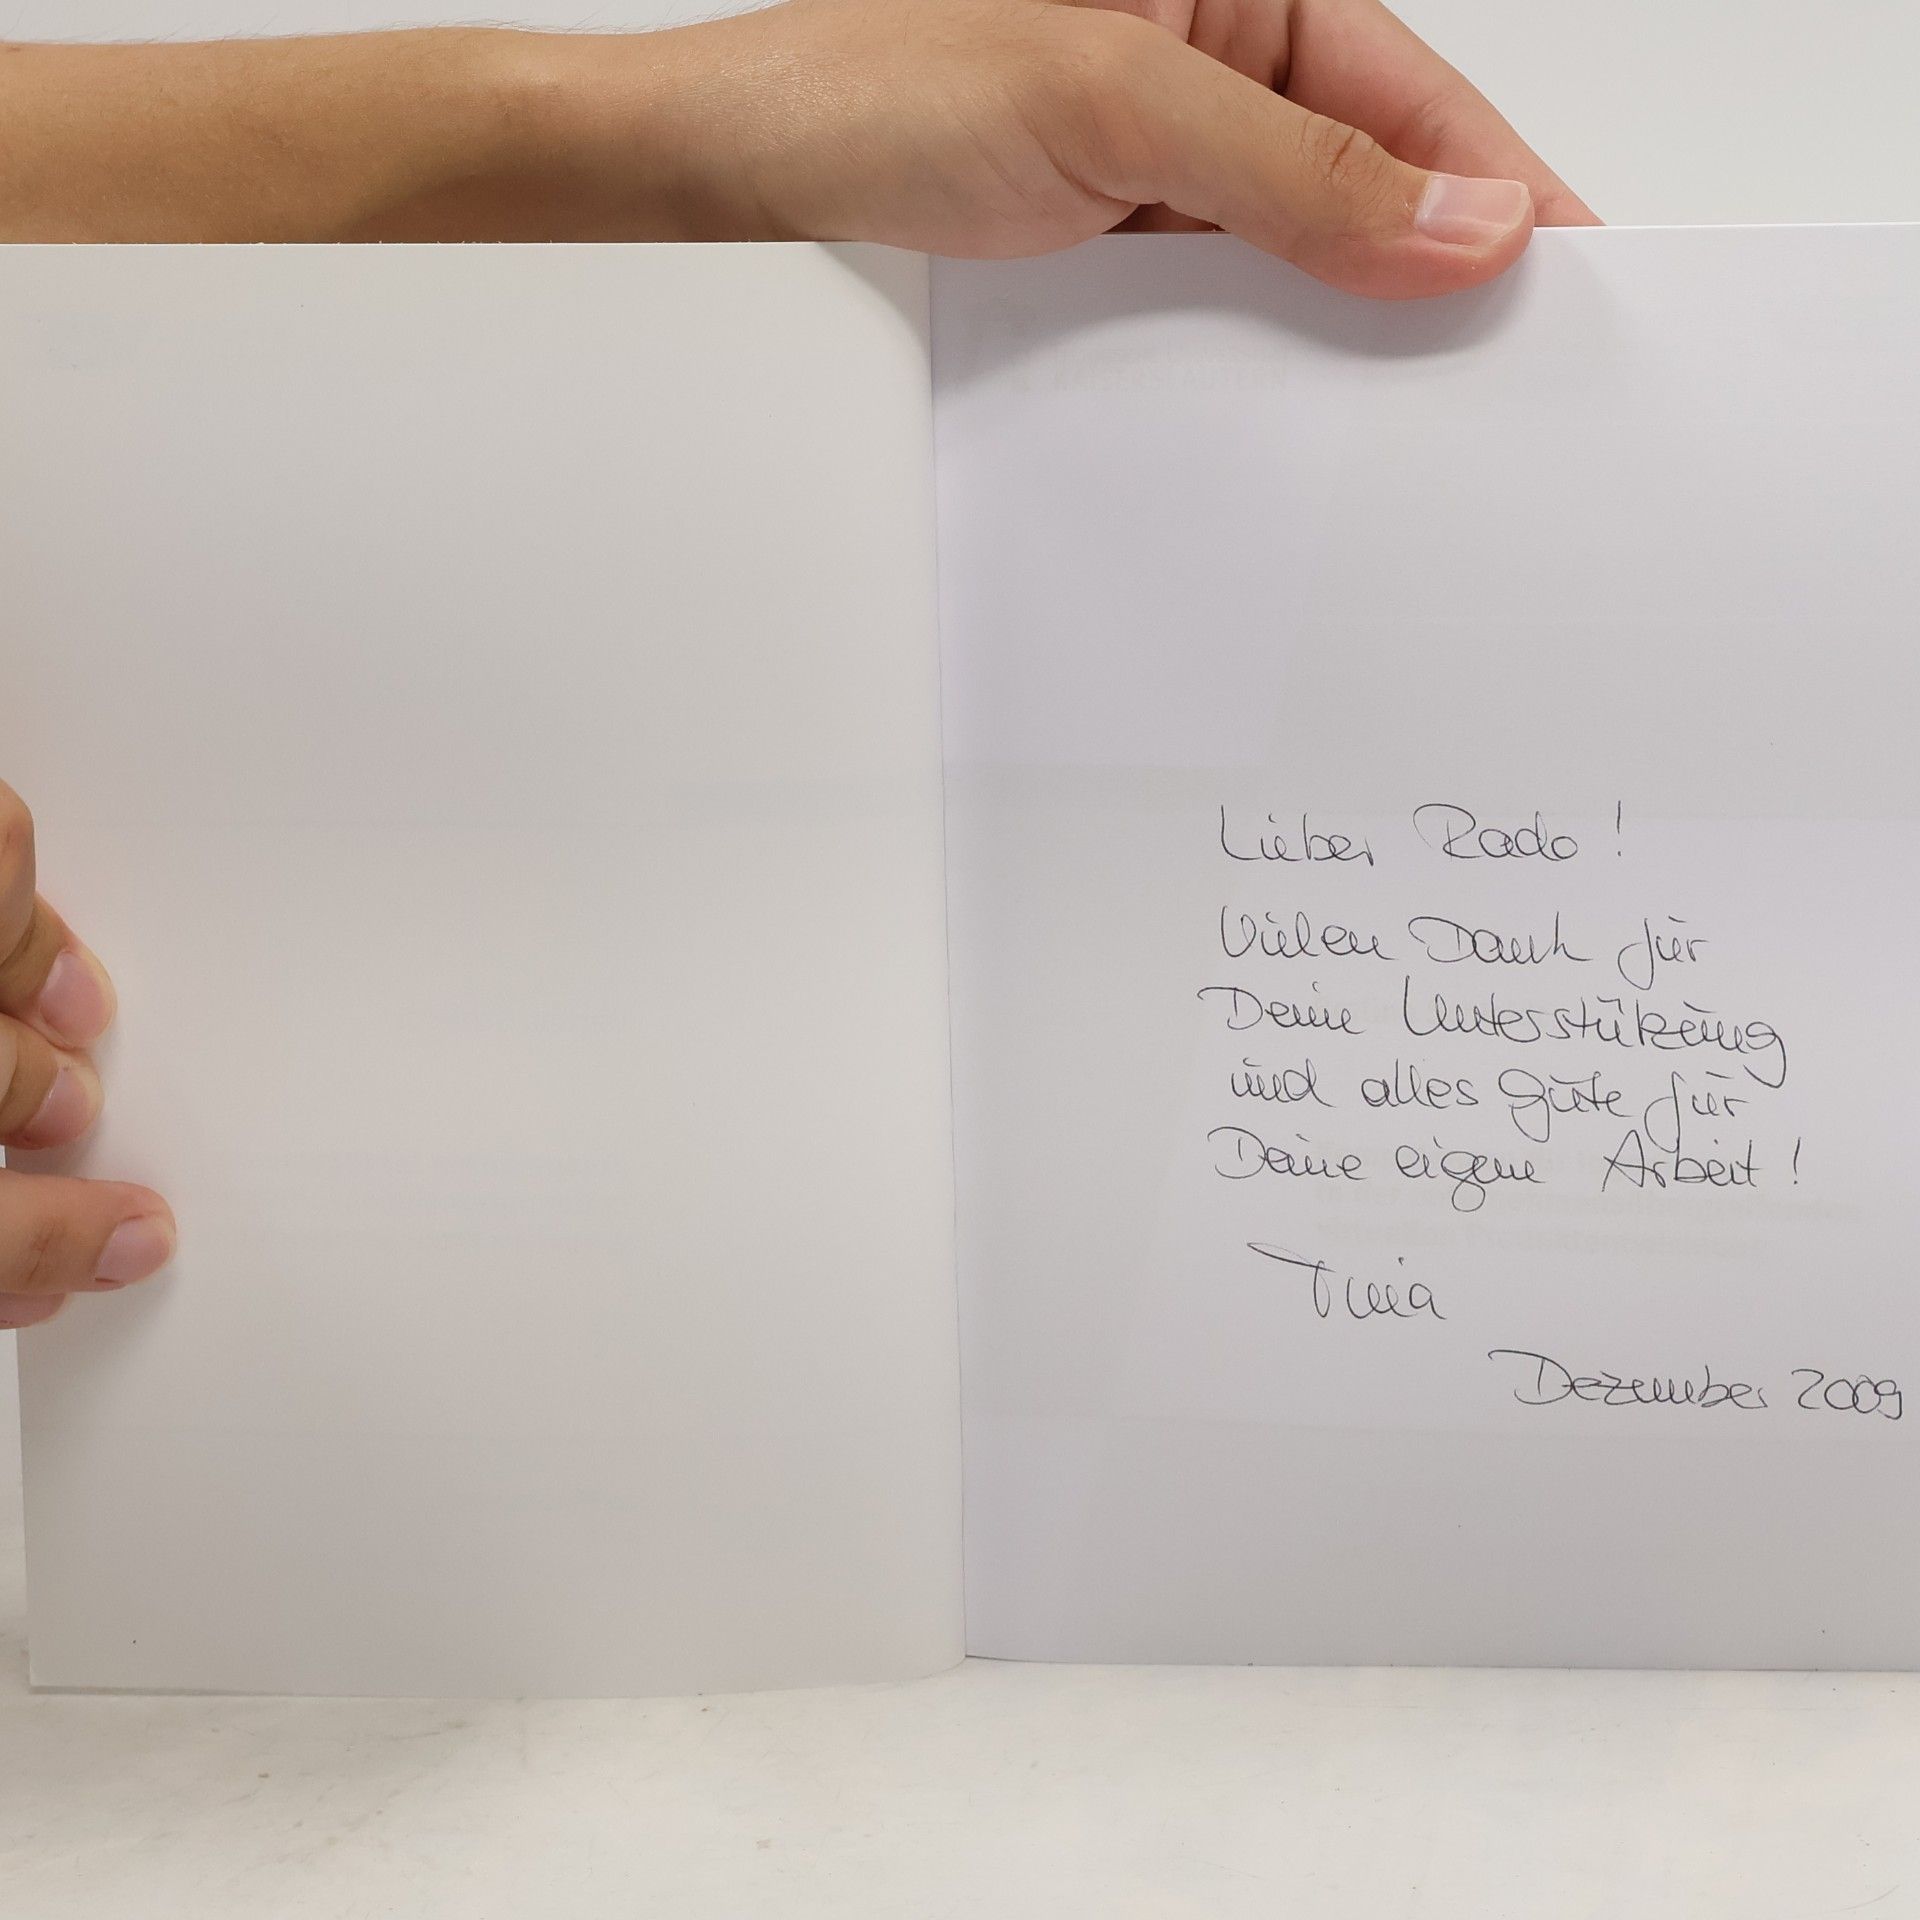 Lieber Rado!
Vielen Dank für
Deine Unterstützung
und alles Gute für
Deine eigene Arbeit!
Dezember 2009